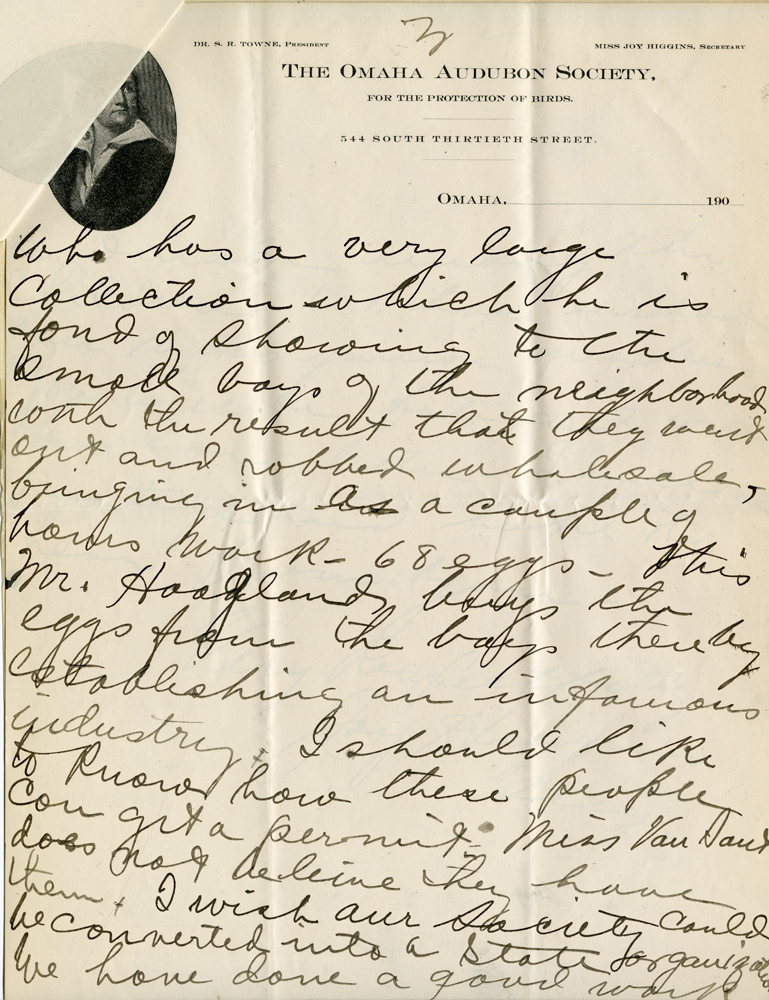 2
DR. S. R. TOWNE, PRESIDENT
MISS JOY HIGGINS, SECRETARY
THE OMAHA AUDUBON SOCIETY,
FOR THE PROTECTION OF BIRDS.
544 SOUTH THIRTIETH STREET.
OMAHA, 190
who has a very large
Collection which he is
fond of showing to the
small boys of the neighborhood
with the result that they went
out and robbed wholesale,
bringing in as a couple of
hours work - 68 eggs - This
Mr. Hoagland buys the
eggs from the boys thereby
establishing an infamous
industry. I should like
to know how these people
can get a permit - Miss Van Sant
does not beleive they have
them. I wish our Society could
be converted into a State organization
We have done a good work